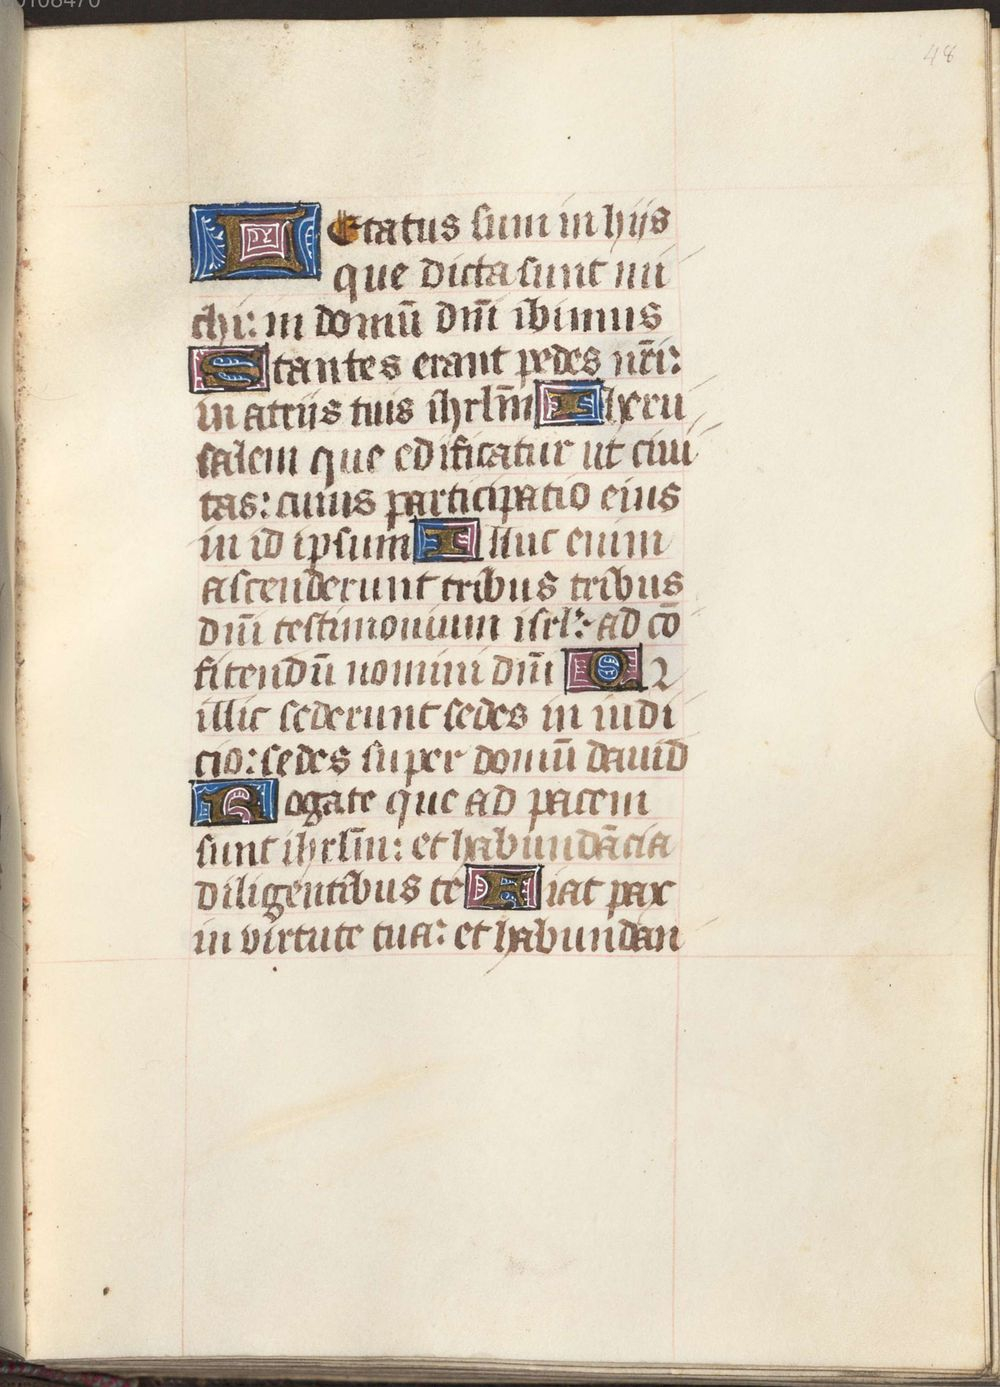 00108470
48
LEtatus sum in hijs
que dicta sunt mi
chi: in domū dm̄i ibimus
Stantes erant pedes nr̄i:
in atriis tuis ihrlm̄ Iheru
salem que edificatur ut ciui
tas: cuius participatio eius
in id ipsum Illuc enim
ascenderunt tribus tribus
dm̄i testimonium isrl': ad cō
fitendū nomini dm̄i Q2
illic sederunt sedes in iudi
cio: sedes super domū dauid
Rogate que ad pacem
sunt ihrlm̄: et habundācia
diligentibus te Fiat pax
in virtute tua: et habundan